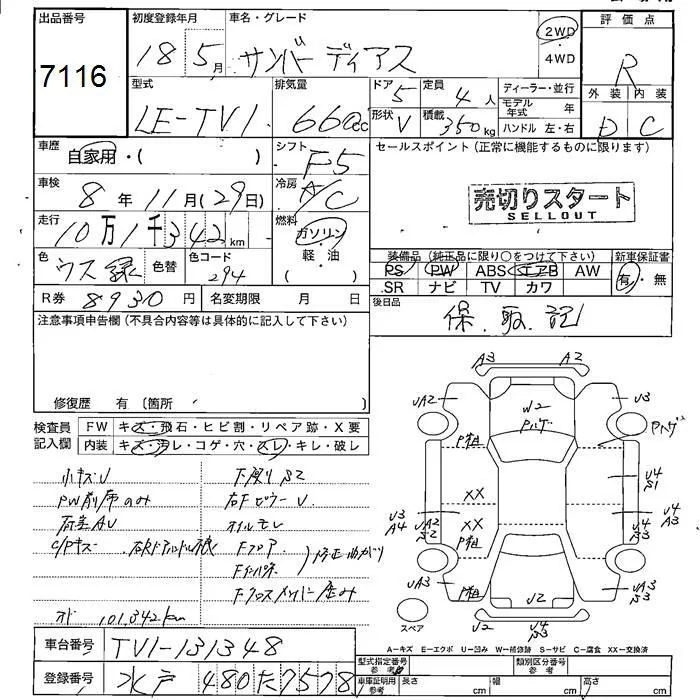 出品番号
7116
初度登録年月
18 5月
車名・グレード
サンバー ディアス
2WD
4WD
評価点
R
外装 内装
D C
型式
LE-TV1
排気量
660cc
ドア 5
定員 4人
形状 V
積載 350kg
ディーラー・並行
モデル年式 年
ハンドル 左・右
車歴
自家用・( )
シフト F5
セールスポイント(正常に機能するものに限ります)
売切りスタート
SELLOUT
車検
8年 11月(29日)
冷房 A/C
走行
10万1千342km
燃料
ガソリン
軽・油
色
ウス緑
色替
色コード
294
装備品(純正品に限り○をつけて下さい)
PS PW ABS エアB AW
SR ナビ TV カワ
新車保証書
有・無
R券 8930円
名変期限 月 日
後日品
保.取.記
注意事項申告欄(不具合内容等は具体的に記入して下さい)
修復歴 有(箇所 )
検査員記入欄
FW キズ・飛石・ヒビ割・リペア跡・X要
内装 キズ・汚レ・コゲ・穴・スレ・キレ・破レ
小キズU
下廻りS2
PW前席のみ
オイルモレ
Fフロア
修正曲がり
101,342km
A3 A2
UA2
U3
W2
Pハゲ
Pハゲ
P粗
XX
XX
P粗
P粗
U4
S1
U3
A4
UA2
S2
U4
S3
U3
A3
UA3
UA3
S3
U2
U2
U4
S3
スペア
A-キズ E-エクボ U-凹み W-補修跡 S-サビ C-腐食 XX-交換済
車台番号
TV1-131348
登録番号
水戸 480 た 7578
型式指定番号
参考
類別区分番号
参考
車庫証明用
参考
長さ cm
幅 cm
高さ cm